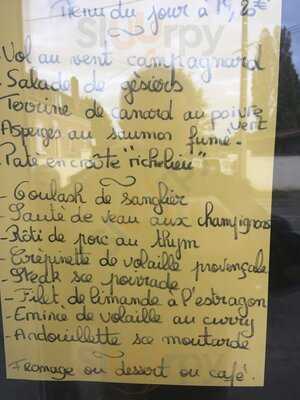 Menu du jour à 14,80€
- Vol au vent campagnard
- Salade de gésiers
- Terrine de canard au poivre vert
Asperges au saumon fumé -
- Paté en croûte "richelieu"
- Goulash de sanglier
- Sauté de veau aux champignons
- Rôti de porc au thym
- Crépinette de volaille provençale
- Steak sce poivrade
- Filet de limande à l'estragon
- Emincé de volaille au curry
- Andouillette sce moutarde
Fromage ou dessert ou café.